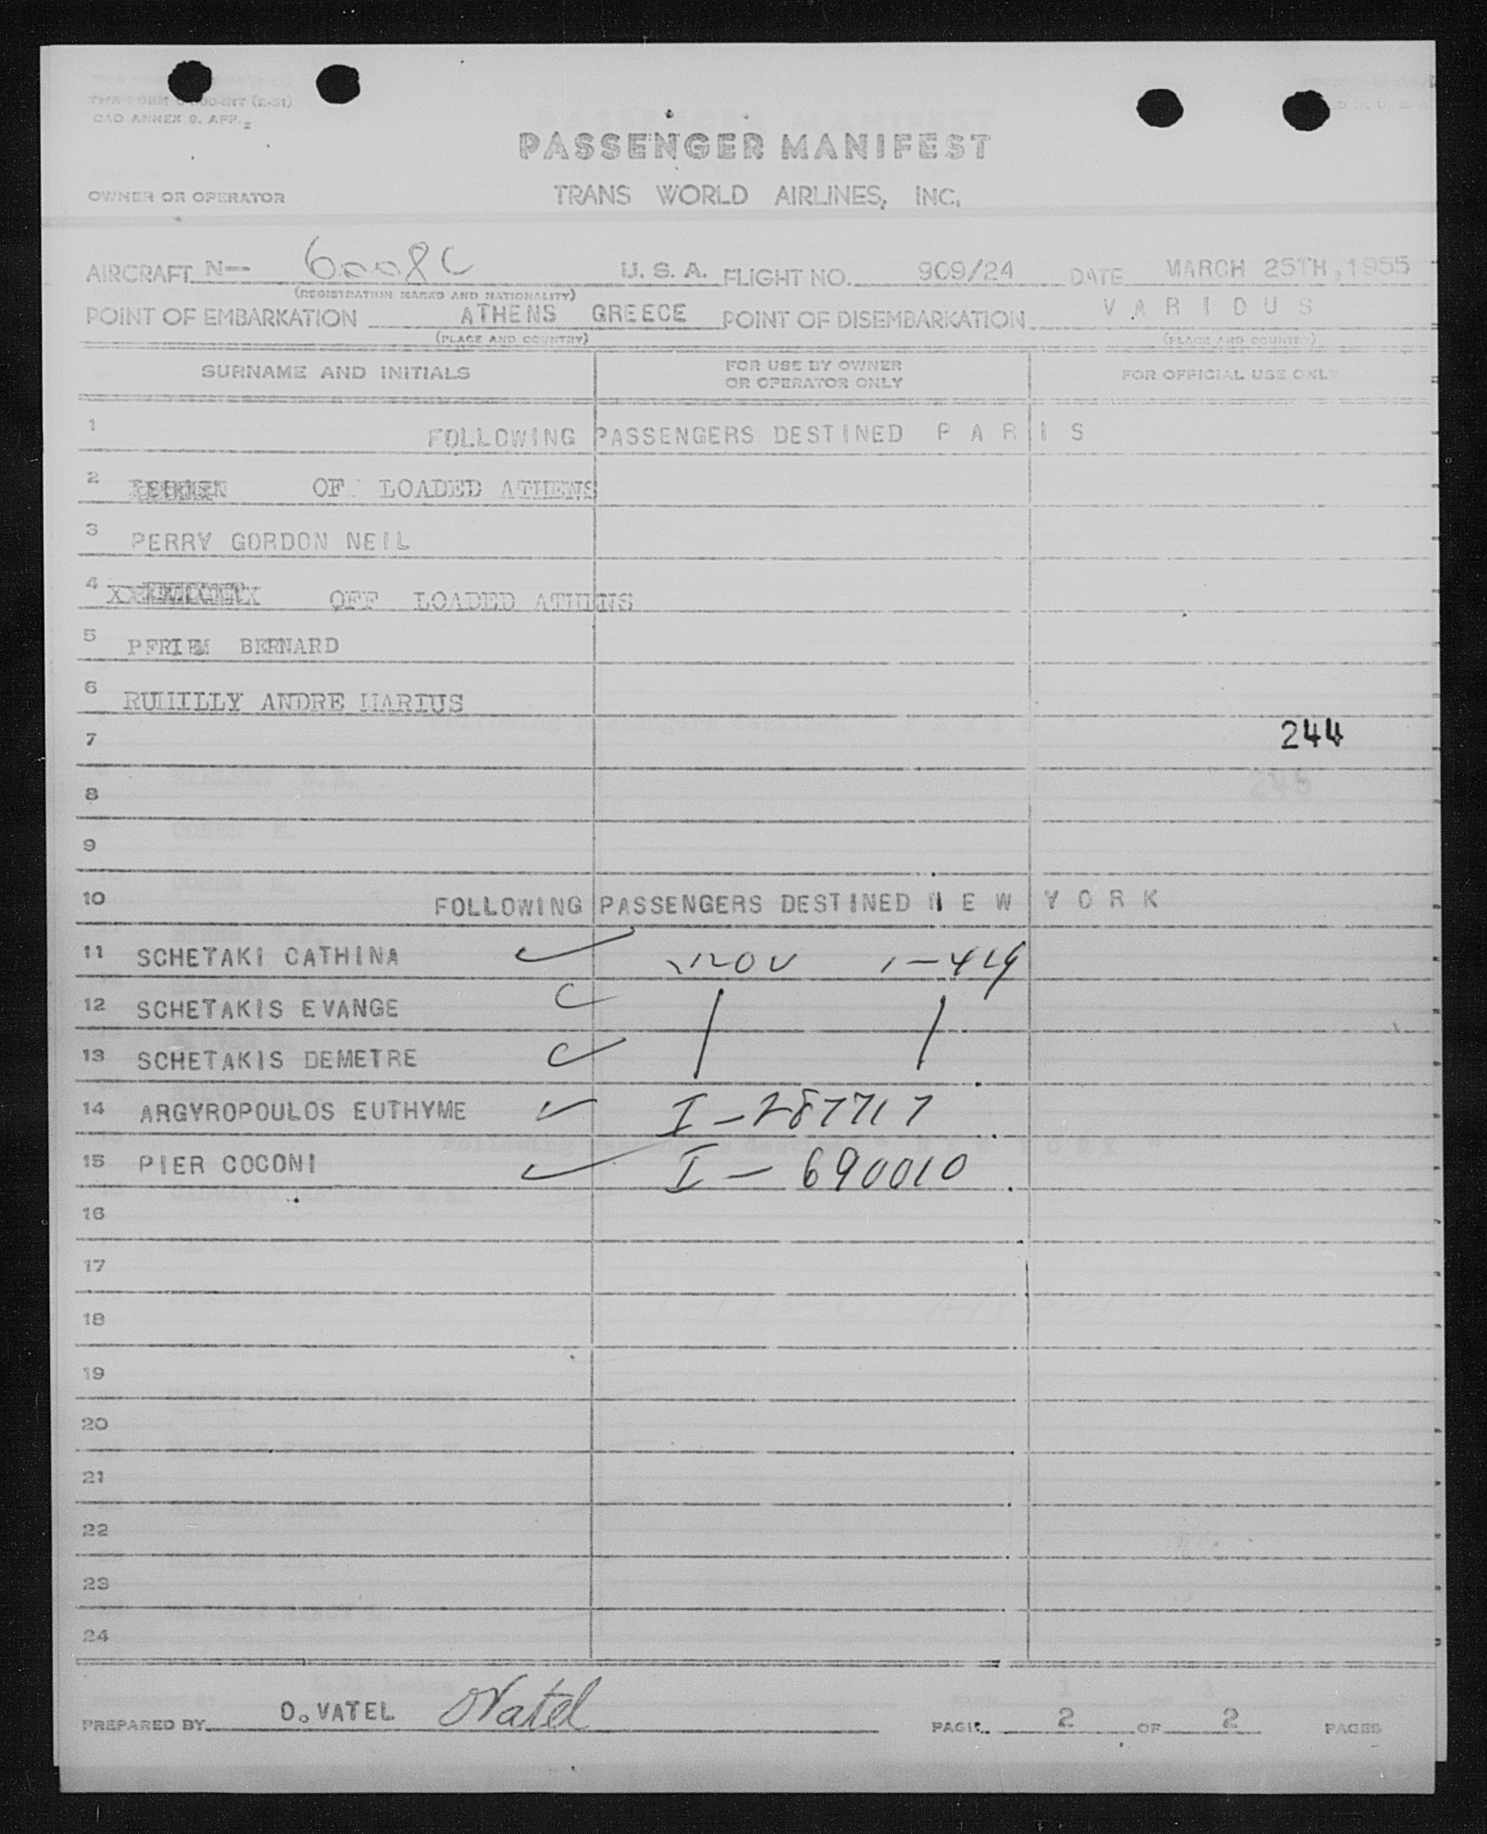 CAO ANNEX 9. APP. 2
PASSENGER MANIFEST
OWNER OR OPERATOR TRANS WORLD AIRLINES, INC.
AIRCRAFT N-- 6008C U.S.A. FLIGHT NO. 909/24 DATE MARCH 25TH, 1955
(REGISTRATION MARKS AND NATIONALITY)
POINT OF EMBARKATION ATHENS GREECE POINT OF DISEMBARKATION VARIOUS
(PLACE AND COUNTRY) (PLACE AND COUNTRY)
SURNAME AND INITIALS FOR USE BY OWNER OR OPERATOR ONLY FOR OFFICIAL USE ONLY
1 FOLLOWING PASSENGERS DESTINED P A R I S
2 OF LOADED ATHENS
3 PERRY GORDON NEIL
4 OFF LOADED ATHENS
5 PFRIEM BERNARD
6 RUMILLY ANDRE MARIUS
7 244
8
9
10 FOLLOWING PASSENGERS DESTINED N E W Y O R K
11 SCHETAKI CATHINA 1-419
12 SCHETAKIS EVANGE
13 SCHETAKIS DEMETRE
14 ARGYROPOULOS EUTHYME I-287717
15 PIER COCONI I-690010
16
17
18
19
20
21
22
23
24
PREPARED BY O. VATEL OVatel PAGE 2 OF 2 PAGES